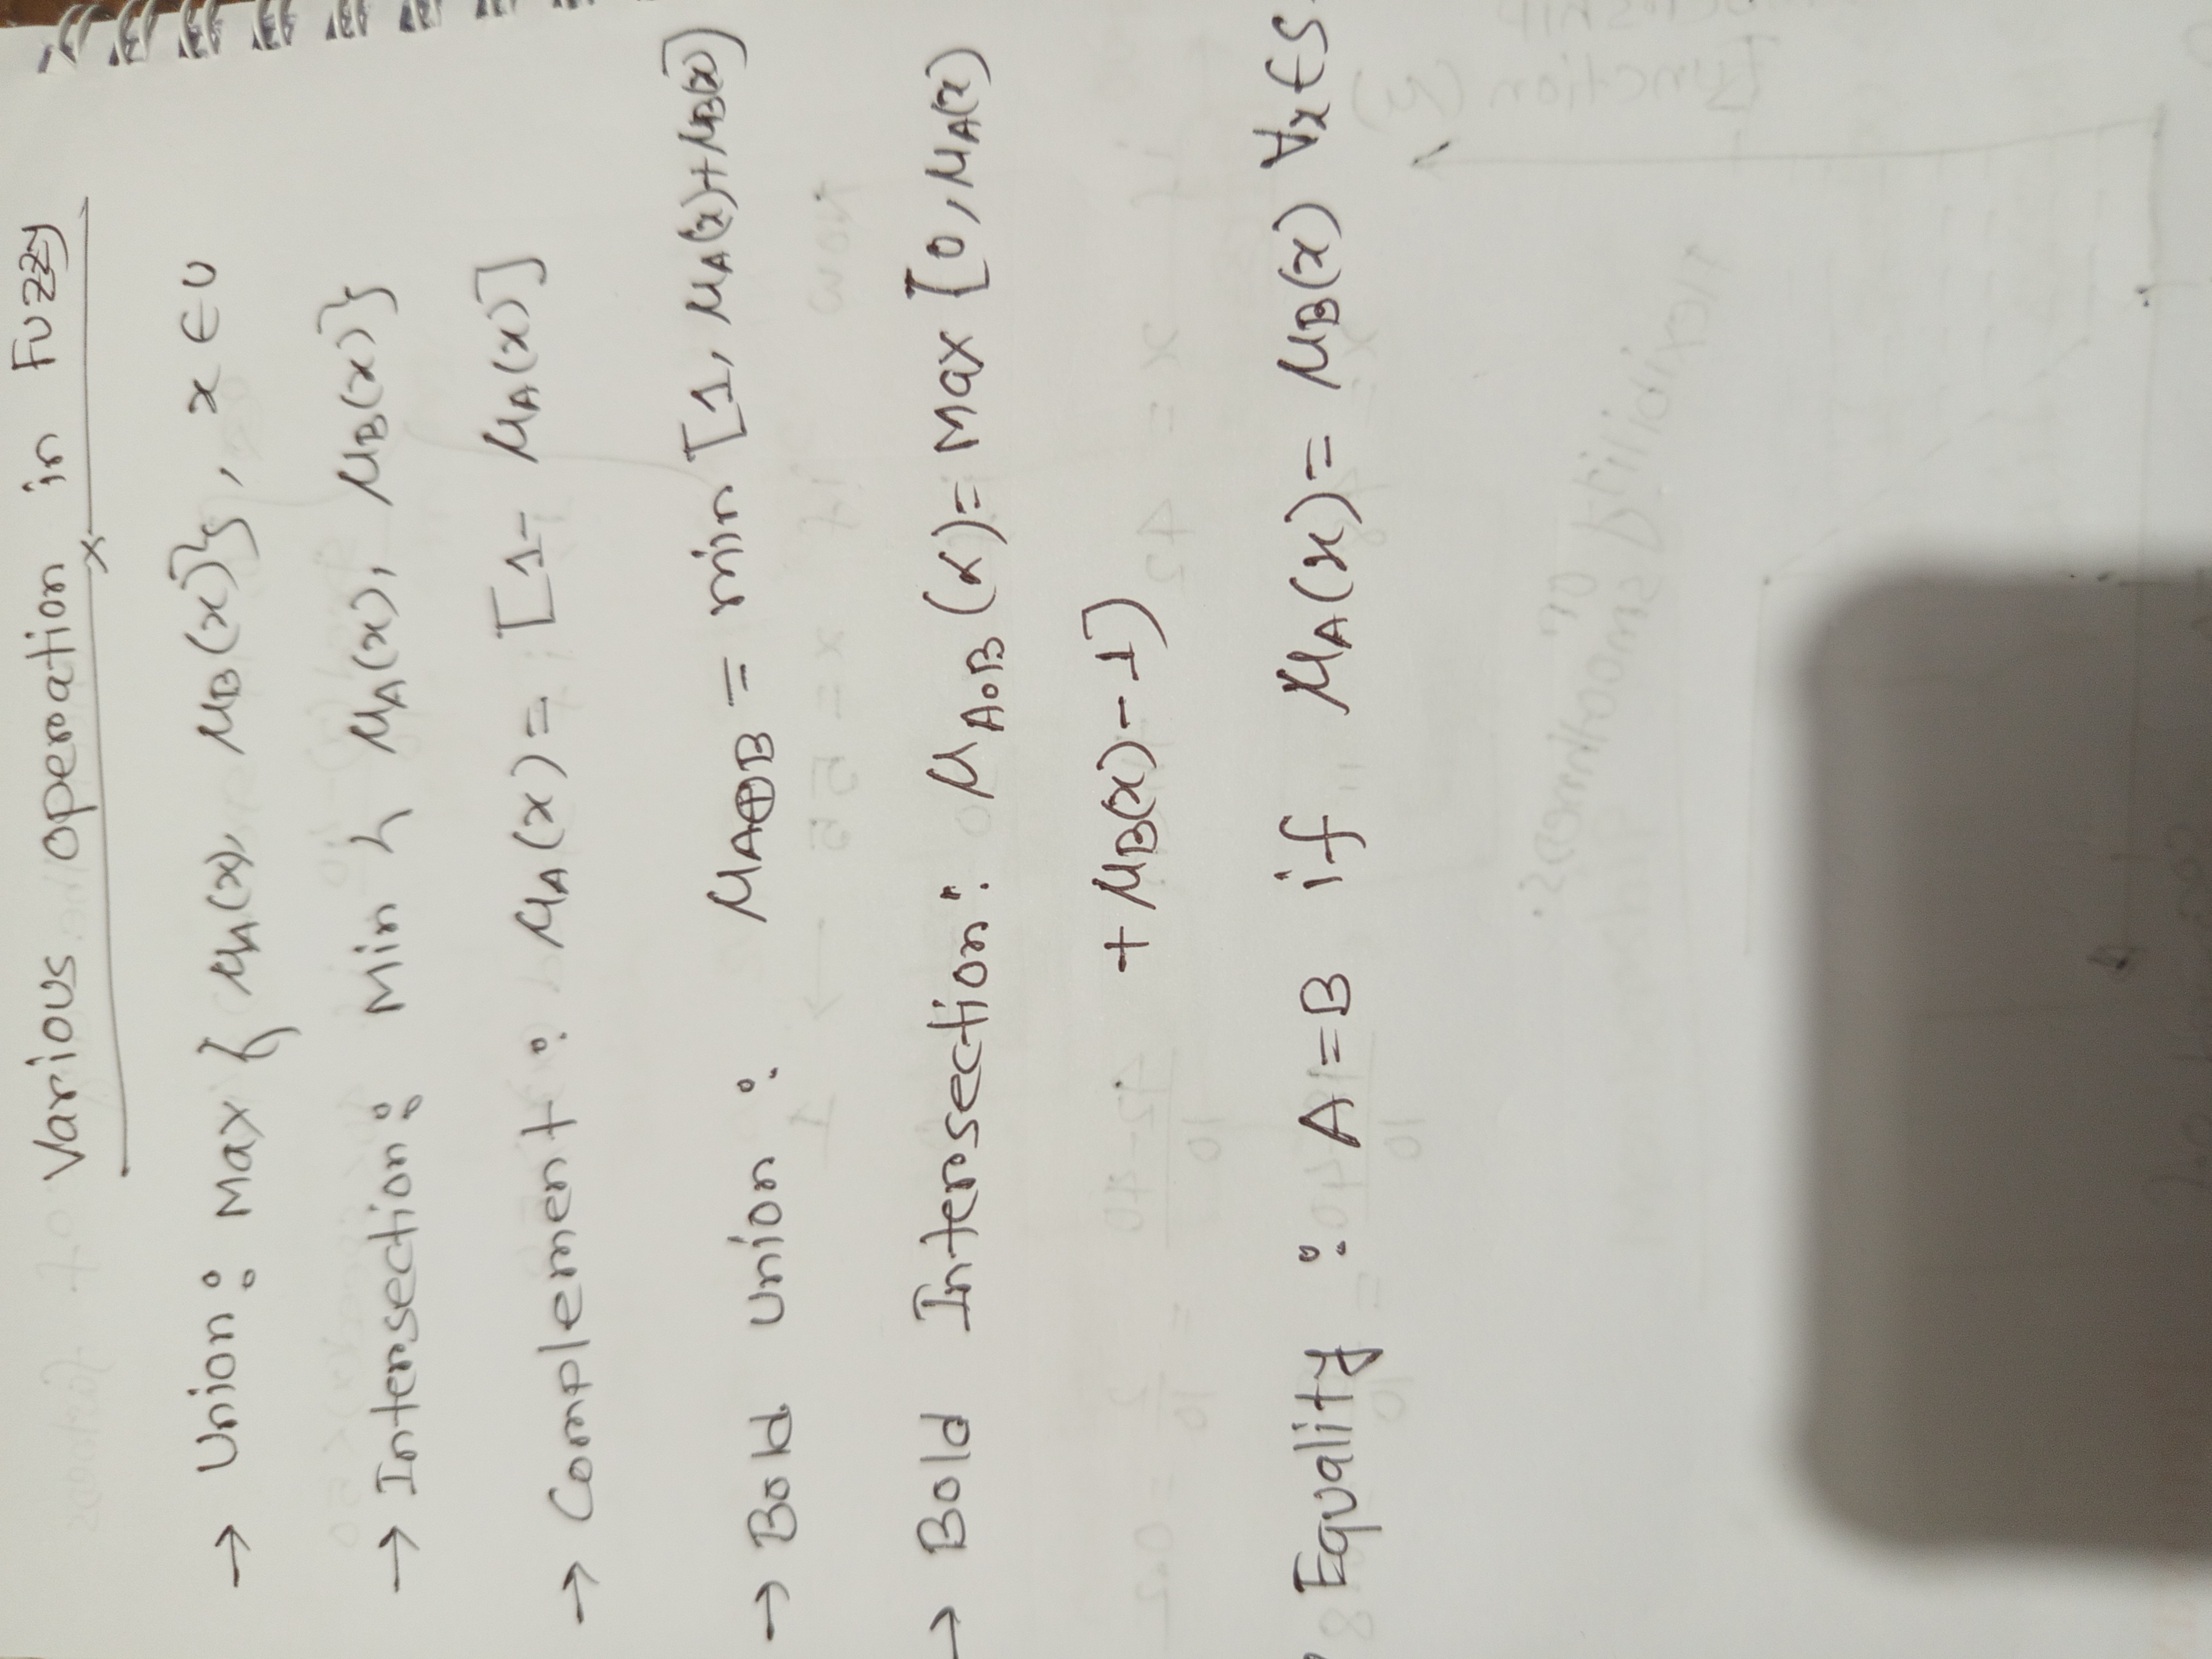 Various operation in Fuzzy
→ Union: Max { μA(x), μB(x)}, x ∈ U
→ Intersection: Min { μA(x), μB(x)}
→ Complement : μA(x) = [1- μA(x)]
→ Bold union : μA⊕B = min [1, μA(x)+μB(x)]
→ Bold Intersection: μA∘B (x) = Max [0, μA(x)
+ μB(x) - 1]
Equality : A = B if μA(x) = μB(x) ∀x ∈ S